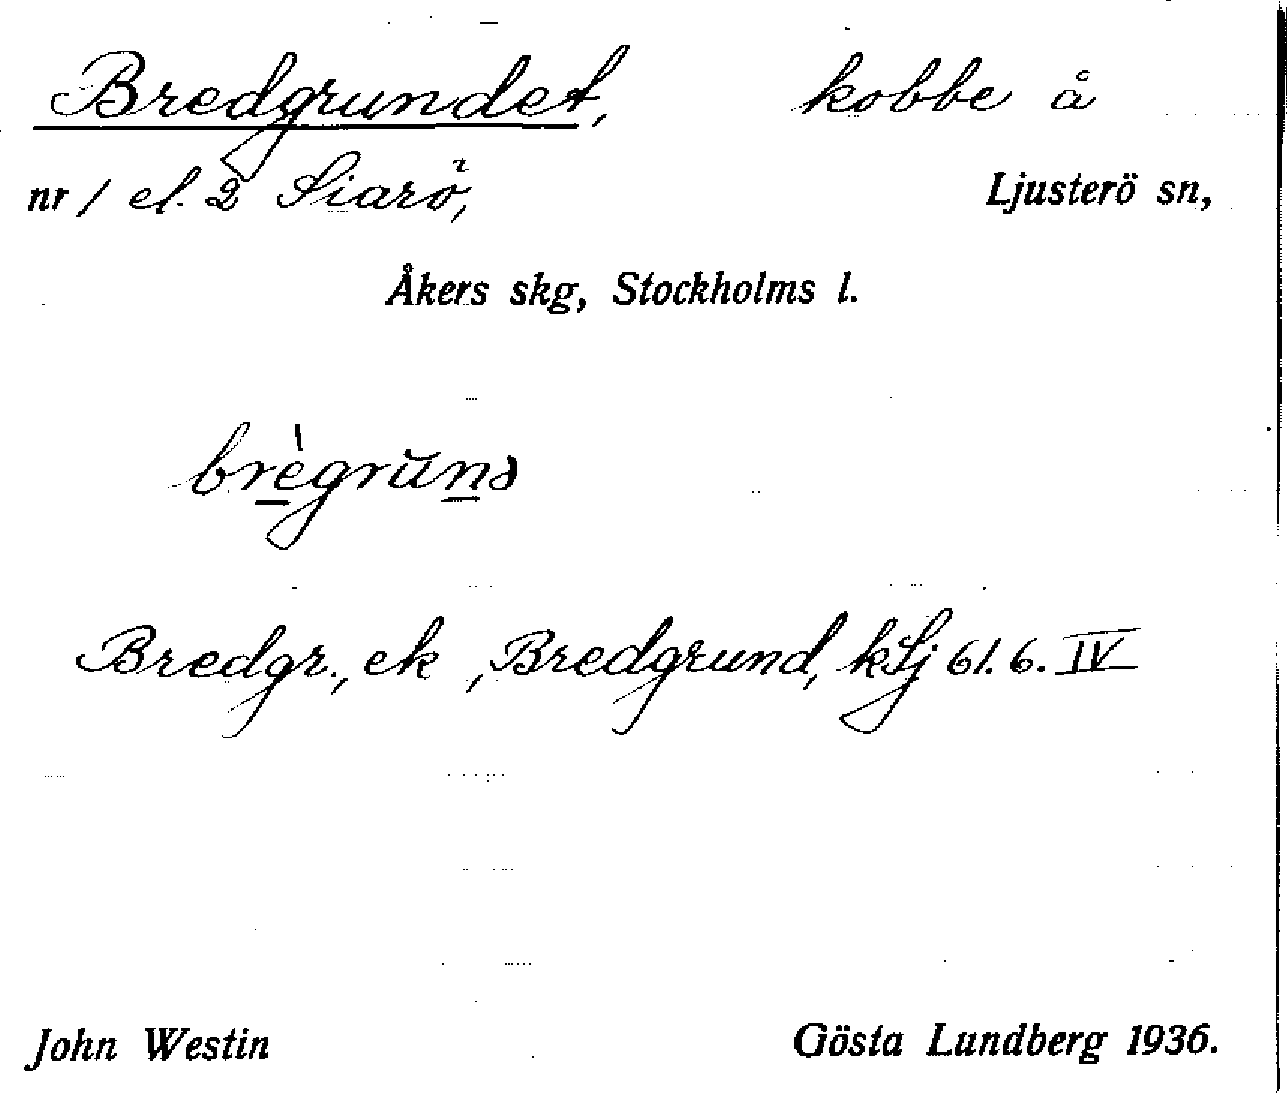 Bredgrundet, kobbe å
nr 1 el. 2 Siarö, Ljusterö sn,
Åkers skg, Stockholms l.
brègrŭnə
Bredgr., ek, Bredgrund, kLj 61.6. IV
John Westin Gösta Lundberg 1936.